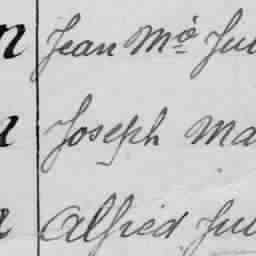 Jean Mº Jul
Joseph Ma
Alfred Jul